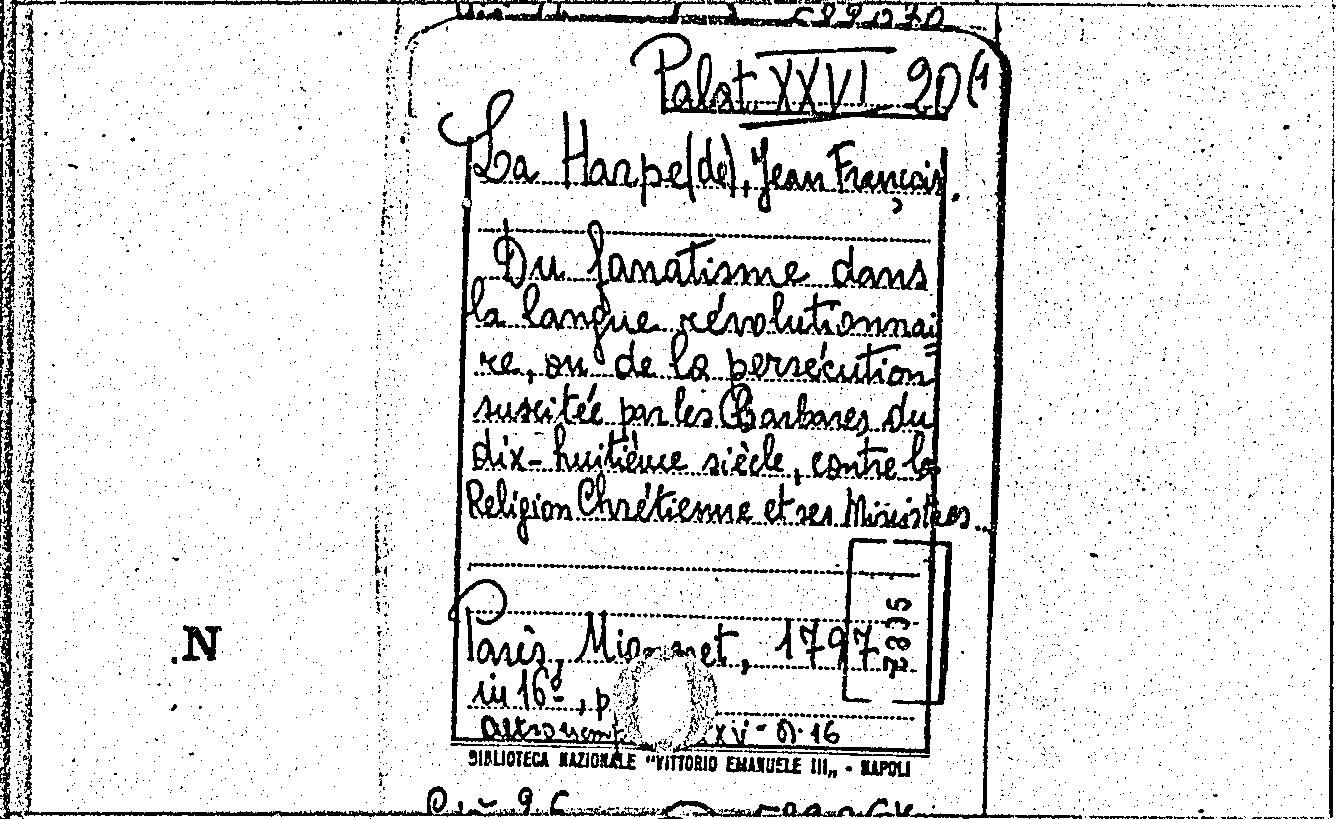 Palat. XXVI 20(1
La Harpe (de), Jean François.
Du fanatisme dans
la langue révolutionnai=
re, ou de la persécution
suscitée par les Barbares du
dix-huitième siècle, contre la
Religion Chrétienne et ses Ministres.
Paris, 1797
in 16º, p
N
BIBLIOTECA NAZIONALE "VITTORIO EMANUELE III„ - NAPOLI